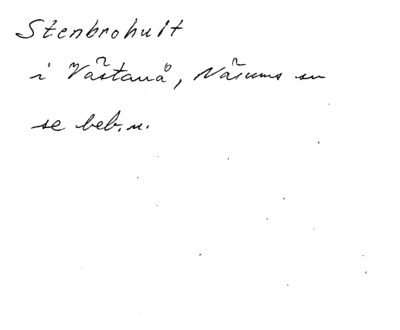 Stenbrohult
i Västanå, Näsums sn
se beb.n.